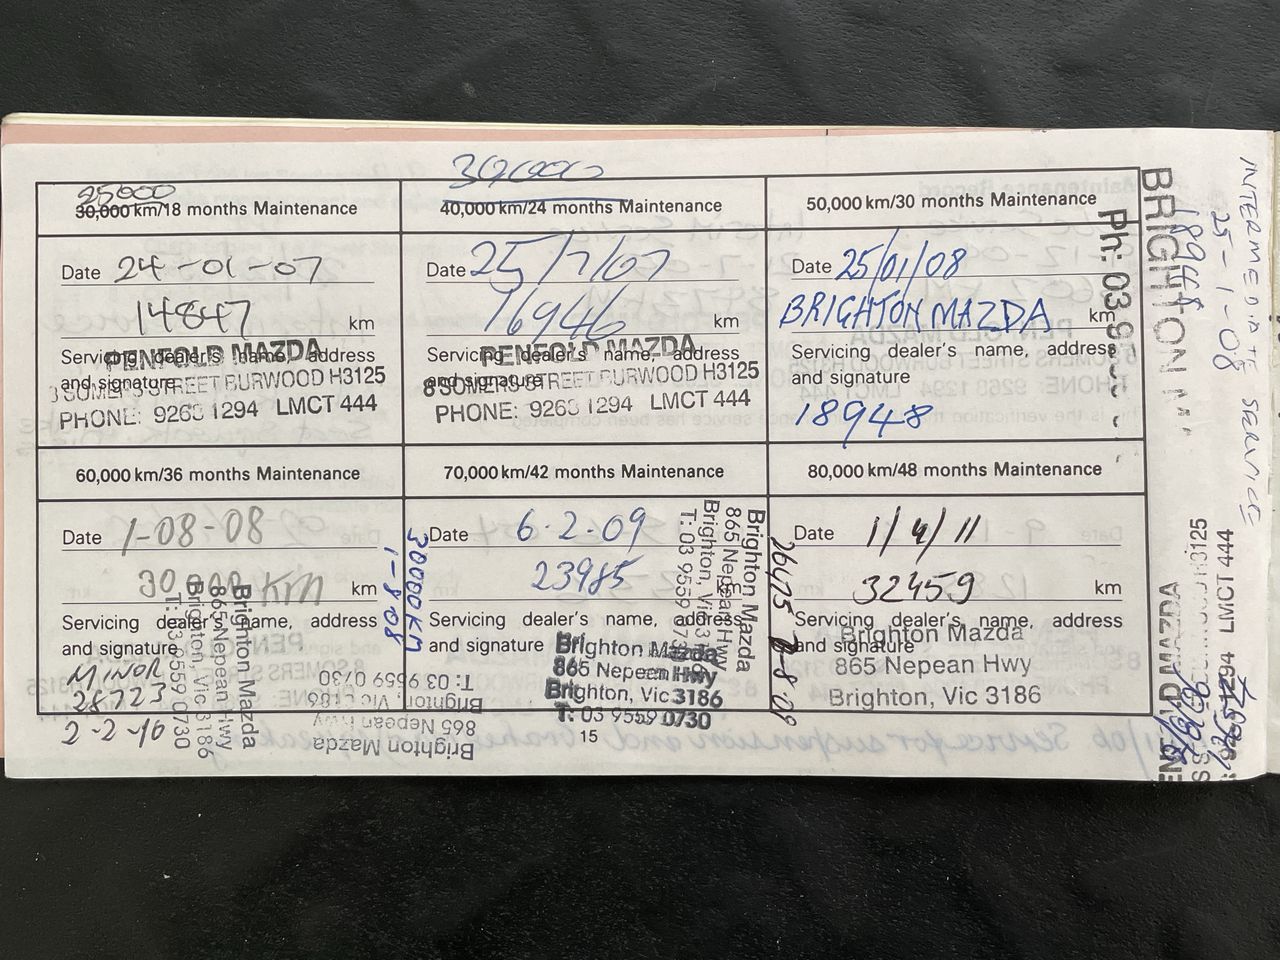 25000
30,000 km/18 months Maintenance
Date 24-01-07
14847 km
Servicing dealer's name, address
and signature
PENFOLD MAZDA
8 SOMERS STREET BURWOOD H3125
PHONE: 9268 1294 LMCT 444
30000
40,000 km/24 months Maintenance
Date 25/7/07
16946 km
Servicing dealer's name, address
and signature
PENFOLD MAZDA
8 SOMERS STREET BURWOOD H3125
PHONE: 9268 1294 LMCT 444
50,000 km/30 months Maintenance
Date 25/01/08
BRIGHTON MAZDA km
Servicing dealer's name, address
and signature
18948
60,000 km/36 months Maintenance
Date 1-08-08
km
Servicing dealer's name, address
and signature
MINOR
28723
2-2-10
Brighton Mazda
865 Nepean Hwy
Brighton, Vic 3186
T: 03 9559 0730
30000 KM
1-8-08
Brighton Mazda
865 Nepean Hwy
Brighton, Vic 3186
T: 03 9559 0730
70,000 km/42 months Maintenance
Date 6.2.09
23985
Servicing dealer's name, address
and signature
Brighton Mazda
865 Nepean Hwy
Brighton, Vic 3186
T: 03 9559 0730
Brighton Mazda
865 Nepean Hwy
Brighton, Vic 3186
T: 03 9559
80,000 km/48 months Maintenance
Date 1/4/11
32459 km
Servicing dealer's name, address
and signature
Brighton Mazda
865 Nepean Hwy
Brighton, Vic 3186
15
INTERMEDIATE SERVICE
25-1-08
18948
BRIGHTON
Ph: 03
MAZDA
H3125
LMCT 444